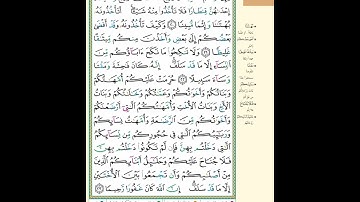 إِحْدَىٰهُنَّ قِنطَارًا فَلَا تَأْخُذُوا۟ مِنْهُ شَيْـًٔا أَتَأْخُذُونَهُۥ
بُهْتَـٰنًا وَإِثْمًا مُّبِينًا ٢٠ وَكَيْفَ تَأْخُذُونَهُۥ وَقَدْ أَفْضَىٰ
بَعْضُكُمْ إِلَىٰ بَعْضٍ وَأَخَذْنَ مِنكُم مِّيثَـٰقًا
غَلِيظًا ٢١ وَلَا تَنكِحُوا۟ مَا نَكَحَ ءَابَآؤُكُم مِّنَ
ٱلنِّسَآءِ إِلَّا مَا قَدْ سَلَفَ إِنَّهُۥ كَانَ فَـٰحِشَةً وَمَقْتًا
وَسَآءَ سَبِيلًا ٢٢ حُرِّمَتْ عَلَيْكُمْ أُمَّهَـٰتُكُمْ
وَبَنَاتُكُمْ وَأَخَوَٰتُكُمْ وَعَمَّـٰتُكُمْ وَخَـٰلَـٰتُكُمْ وَبَنَاتُ
ٱلْأَخِ وَبَنَاتُ ٱلْأُخْتِ وَأُمَّهَـٰتُكُمُ ٱلَّـٰتِىٓ أَرْضَعْنَكُمْ
وَأَخَوَٰتُكُم مِّنَ ٱلرَّضَـٰعَةِ وَأُمَّهَـٰتُ نِسَآئِكُمْ
وَرَبَـٰٓئِبُكُمُ ٱلَّـٰتِى فِى حُجُورِكُم مِّن نِّسَآئِكُمُ
ٱلَّـٰتِى دَخَلْتُم بِهِنَّ فَإِن لَّمْ تَكُونُوا۟ دَخَلْتُم بِهِنَّ
فَلَا جُنَاحَ عَلَيْكُمْ وَحَلَـٰٓئِلُ أَبْنَآئِكُمُ ٱلَّذِينَ
مِنْ أَصْلَـٰبِكُمْ وَأَن تَجْمَعُوا۟ بَيْنَ ٱلْأُخْتَيْنِ
إِلَّا مَا قَدْ سَلَفَ إِنَّ ٱللَّهَ كَانَ غَفُورًا رَّحِيمًا ٢٣